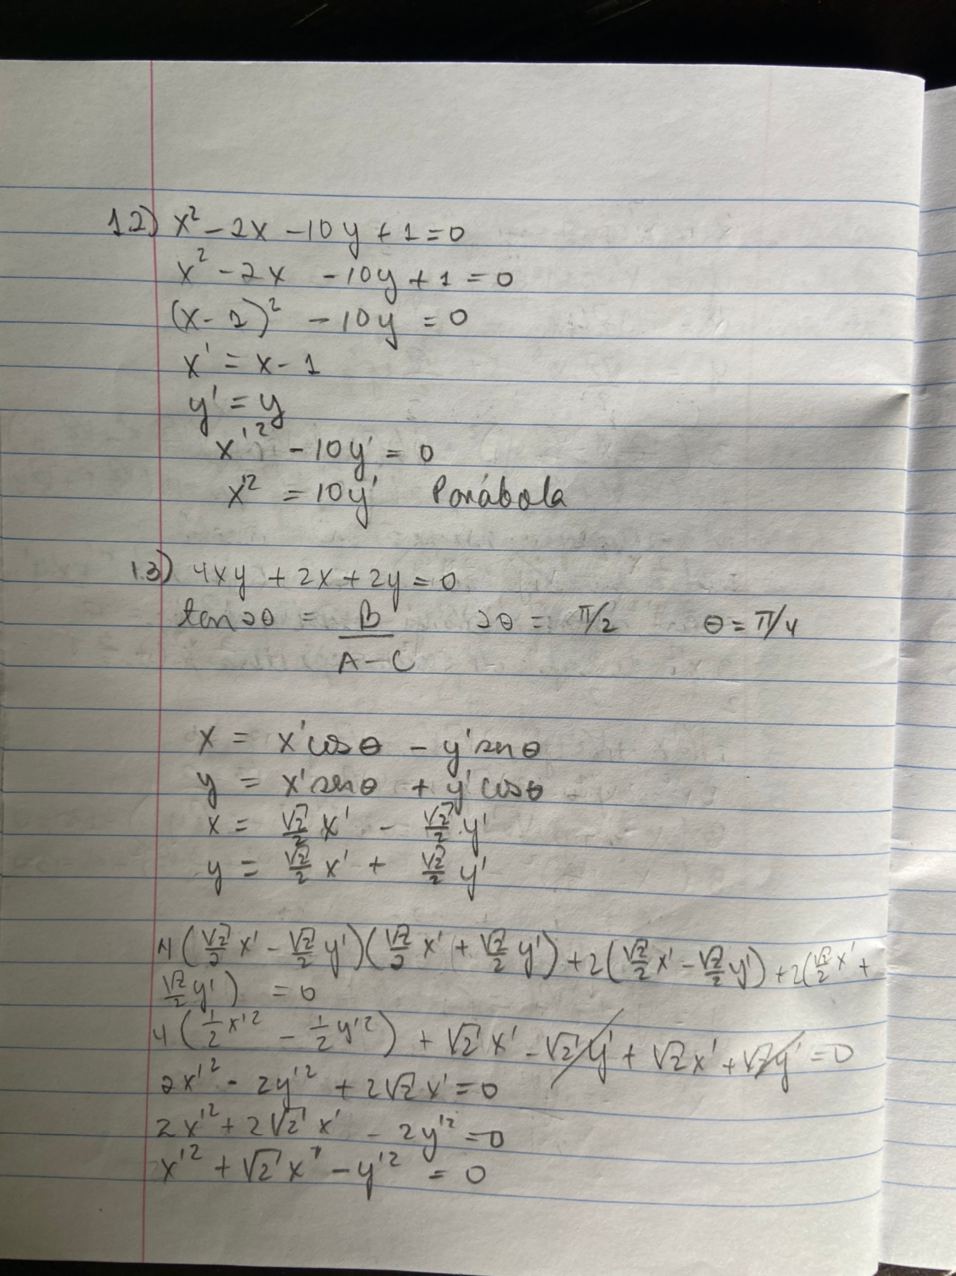 12) x² - 2x - 10y + 1 = 0
x² - 2x - 10y + 1 = 0
(x - 1)² - 10y = 0
x' = x - 1
y' = y
x'² - 10y' = 0
x'² = 10y' Parábola
13) 4xy + 2x + 2y = 0
tan 2θ = B/(A - C) 2θ = π/2 θ = π/4
x = x'cosθ - y'senθ
y = x'senθ + y'cosθ
x = √2/2 x' - √2/2 y'
y = √2/2 x' + √2/2 y'
4(√2/2 x' - √2/2 y')(√2/2 x' + √2/2 y') + 2(√2/2 x' - √2/2 y') + 2(√2/2 x' +
√2/2 y') = 0
4(1/2 x'² - 1/2 y'²) + √2 x' - √2 y' + √2 x' + √2 y' = 0
2x'² - 2y'² + 2√2 x' = 0
2x'² + 2√2 x' - 2y'² = 0
x'² + √2 x' - y'² = 0